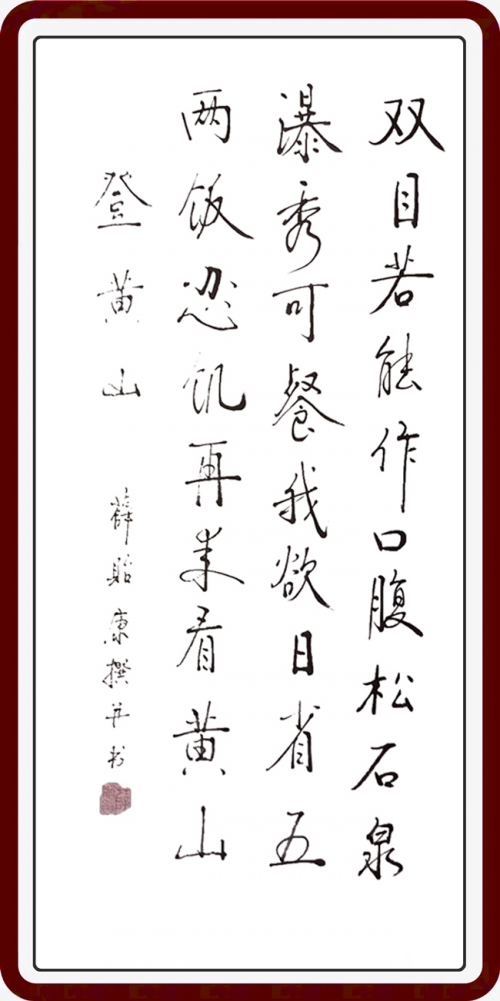 双目若能作口腹松石泉
瀑秀可餐我欲日省五
两饭忍饥再来看黄山
登黄山
薛贻康撰并书